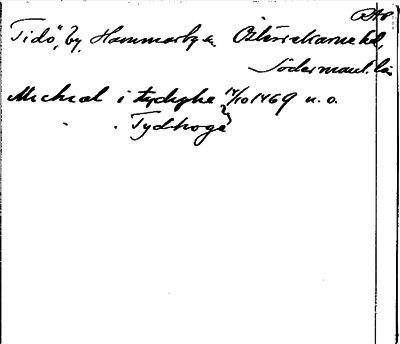 Tidö, by, Hammarby sn Österrekarne hd,
Södermanl. län
Michael i tydighe 14/10 1469 u. o.
Tydhoge